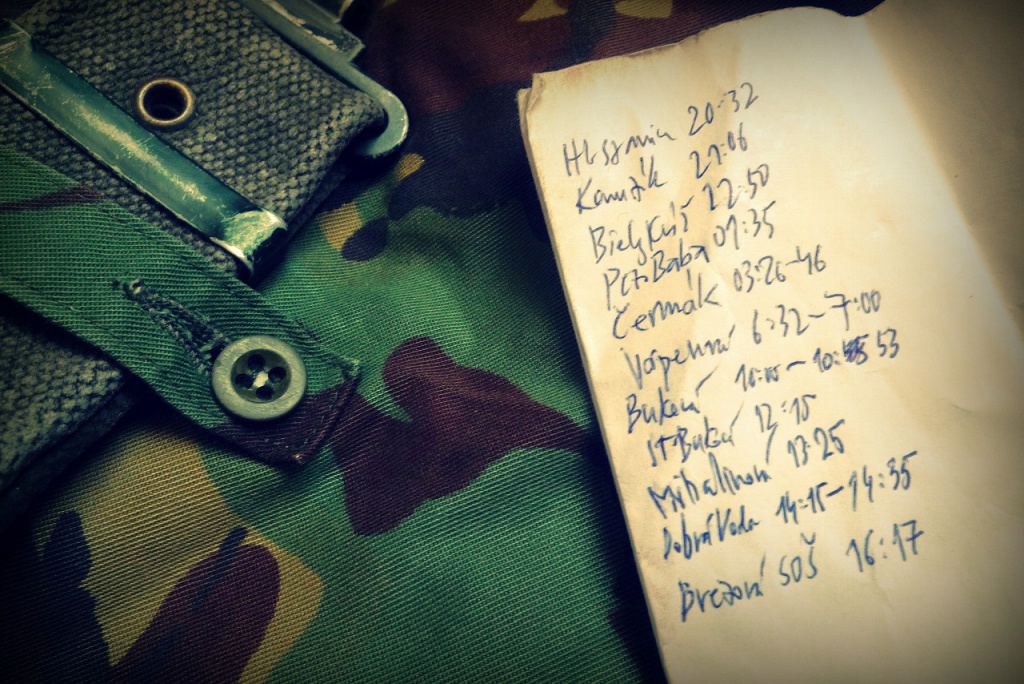 20:32
Kamzík 21:06
Biely Kríž 22:50
Pez. Baba 01:35
Čermák 03:26-46
Vápenná 6:32-7:00
Buková 10:10-10:53
St. Buková 12:15
Mihalinová 13:25
Dobrá Voda 14:15-14:35
Brezová SOŠ 16:17